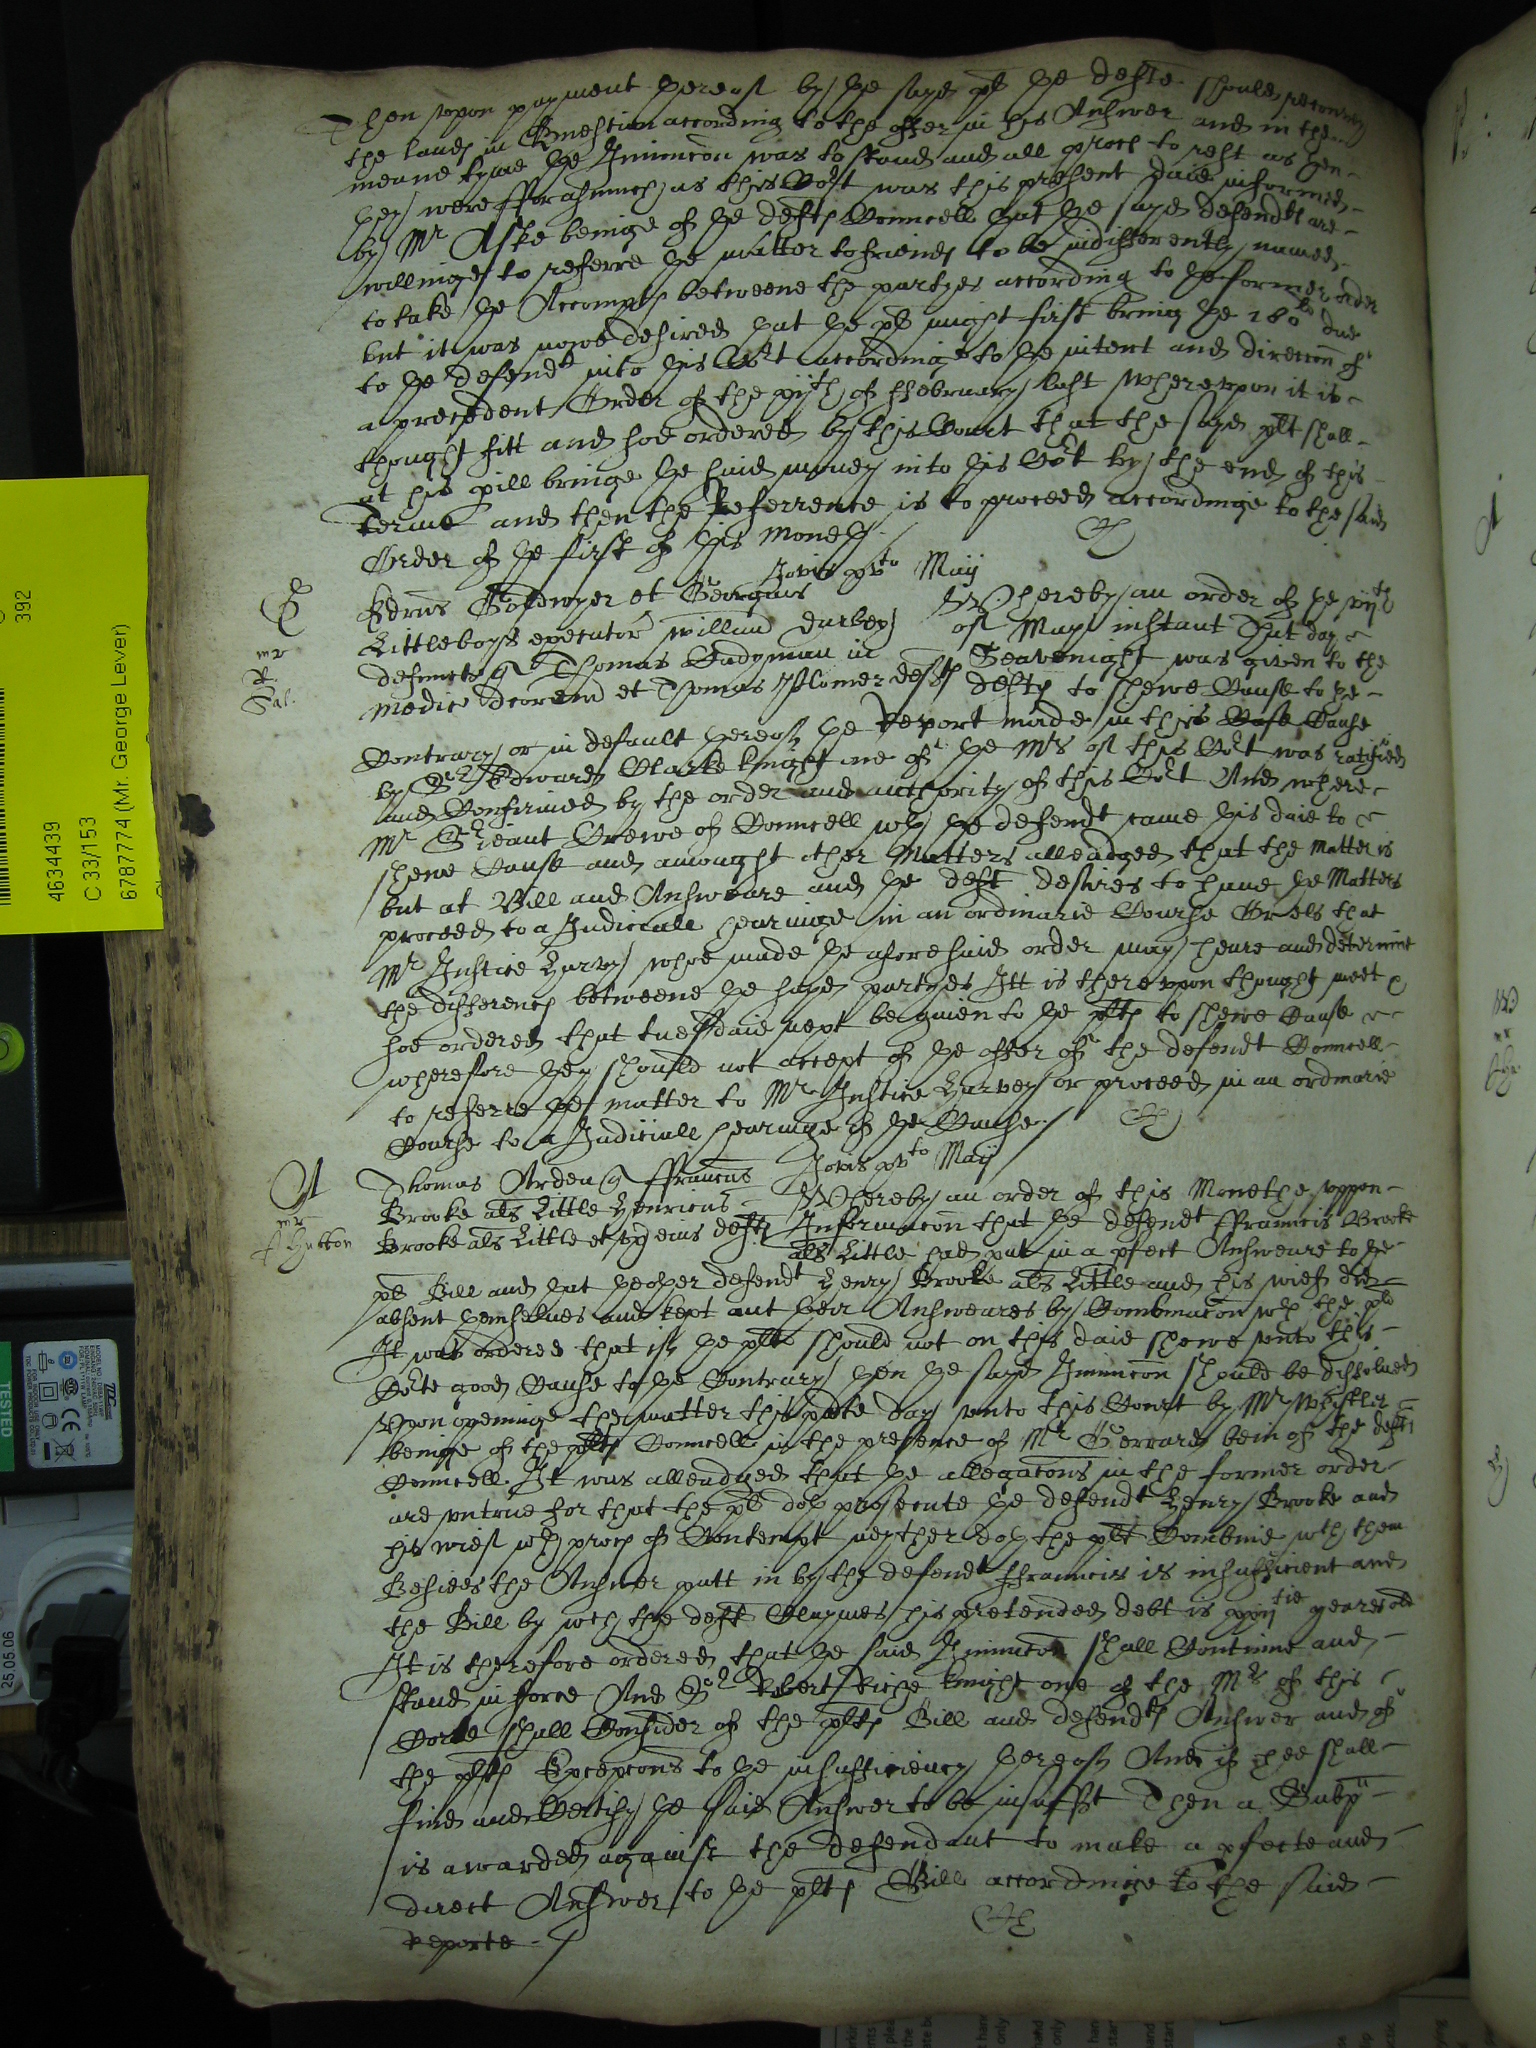 Then vpon payment thereof by the sayd plt the defte should reconvey
the lands in Question according to the offer in his Answer and in the
meane tyme the Iniunccon was to stand and all proces to rest as then
they were fforasmuch as this Cort was this present daie informed
by Mr Aske beinge of the defts Councell that the sayd defendts are
willinge to referre the matter to friends to be indifferently named
to take the Accompts betweene the partyes according to the former order
but it was nowe desired that the plt might first bring the 180li due
to the defendt into this Cort accordinge to the intent and direccon of
a precedent Order of the xijth of ffebruary last Wherevpon it is
thought fitt and soe ordered by this Court that the sayd plt shall
at his pill bringe the said money into this Cort by the end of this
Terme and then the Referrence is to proceed accordinge to the said
Order of the first of this Moneth.
Jovis xvto Maij
Edrus et Georgius
Littleboyes executor Willmi Darbey
defuncti Thomas Cadyman in
medic dcorem et Thomas Plomer defts
Whereby an order of the vijth
of May instant that day
Seavenight was given to the
defts to shewe Cause to the
Contrary or in default thereof the Report made in this Cause
by Sr Edward Clarke knight one of the Mrs of this Cort was ratified
and Confirmed by the order and authority of this Cort And where
Mr Srieant Crewe of Councell wth the defendt came this daie to
shewe Cause and amongst other Matters alleadged that the Matter is
but at Bill and Answeare and the deft desires to have the Matters
proceed to a Judiciall hearinge in an ordinarie Course Or els that
Mr Justice Harvey whoe made the aforesaid order may heare and determine
the differences betweene the sayd partyes Itt is therevpon thought meet &
soe ordered that tuesdaie next be given to the plts to shewe Cause
wherefore they should not accept of the offer of the defendt Councell
to referre the matter to Mr Justice Harvey or proceed in an ordinarie
Course to a Judiciall hearinge of the Cause.
Mr
Jovis xvto Maij
A
Thomas Arden q ffrancus
Brooke als Little Henricus
Brooke als Little et vx eius defts
Hutton
Whereby an order of this Monethe vppon
Informacon that the defendt ffrauncis Brooke
als Little had put in a pfect Answeare to the
plt Bill and that thother defendt Henry Brooke als Little and his wief did
absent themselues and kept out their Answeares by Combinacon wth the plt
It was ordered that if the plts should not on this daie shewe vnto this
Corte good Cause to the Contrary then the sayd Iniunccon should be dissolued
Vpon openinge the matter this pnte day vnto this Court by Mr Whistler
beinge of the plts Councell in the presence of Mr Gerrard bein of the defts
Councell. It was alleadged that the allegacons in the former order
are vntrue for that the plt doth prosecute the defendt Henry Brooke and
his wief wth proces of Contempt neyther doth the plt Combine wth them
Besides the Answer putt in by the defendt ffrauncis is insufficient and
the Bill by wch the deft Claymes his pretended debt is xxijtie yeares old
It is therefore ordered that the said Iniunccon shall Continue and
stand in force And Sr Robert Riche knight one of the Mrs of this
Corte shall Consider of the plts Bill and defendts Answer and of
the plts Excepcons to the insufficiency thereof And if hee shall
find and Certify the said Answer to be insuffit Then a Subp
is awarded against the defendant to make a pfecte and
direct Answer to the plts Bill accordinge to the said
reporte.
4634439
C 33/153
67877774 (Mr. George Lever)
392
TESTED
25.05.06